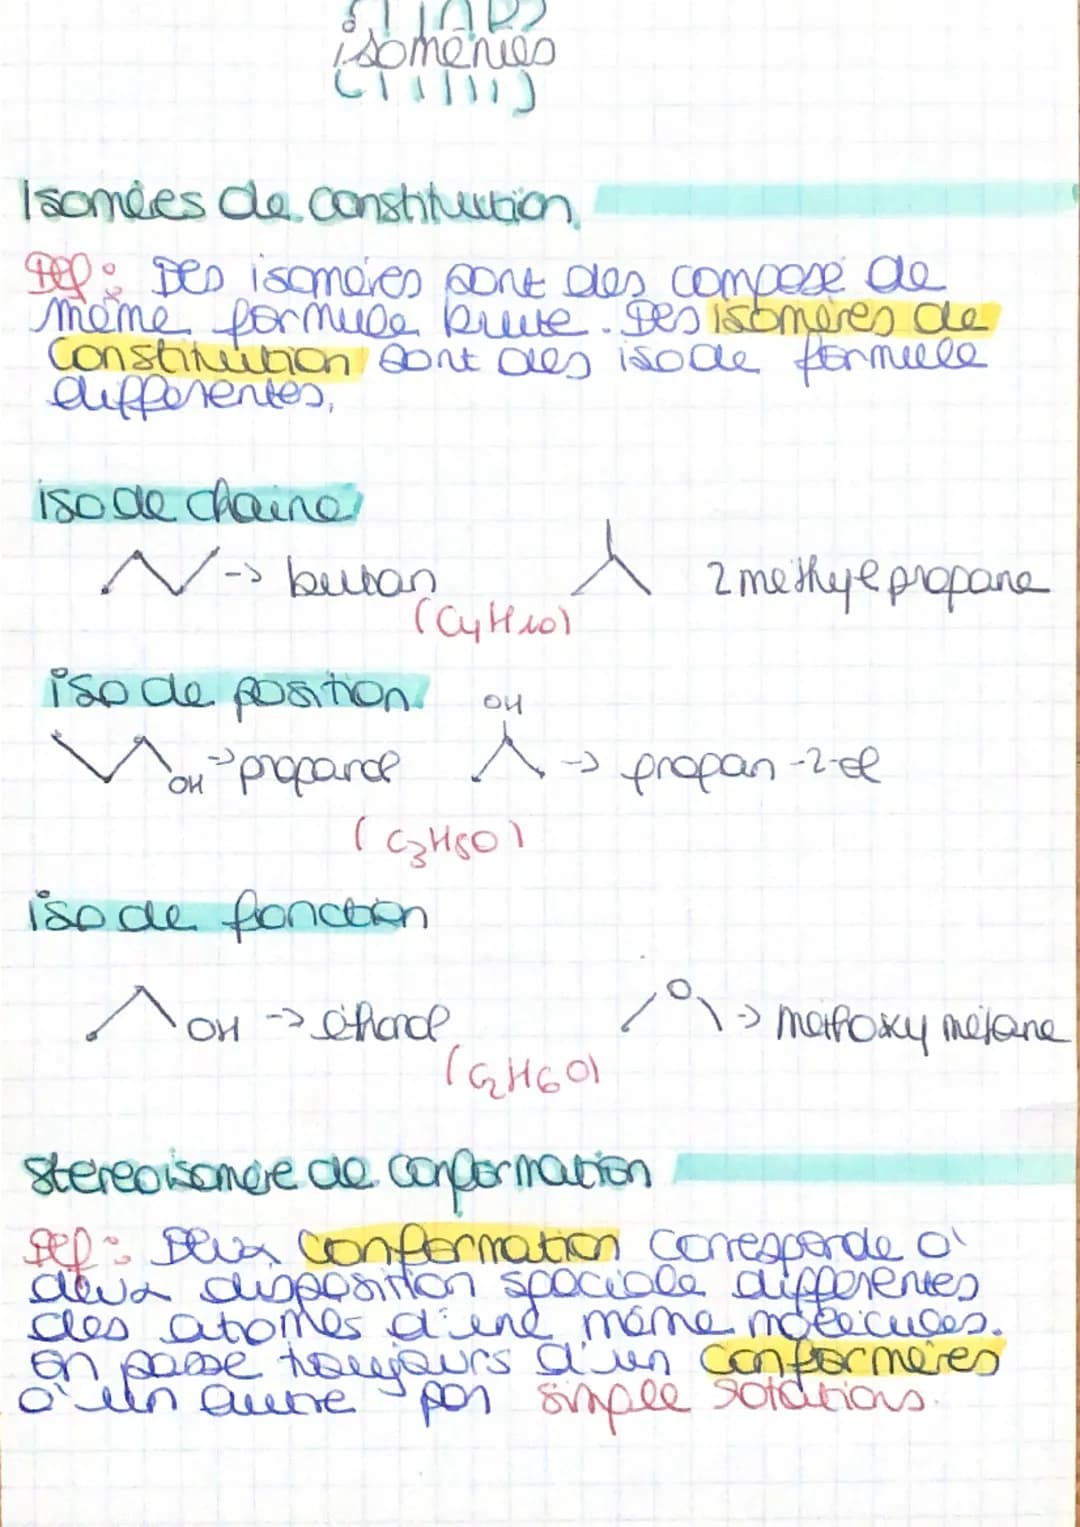 isoméries
Isomères de constitution
Def: Des isomères sont des composé de
même formule brute. Des isomères de
constitution sont des iso de formule
differentes.
iso de chaine
-> butan
2 methyl propane
(C4H10)
iso de position
OH
OH -> propanol
-> propan-2-ol
(C3H8O)
iso de fonction
O
OH -> éthanol
-> méthoxy métane
(C2H6O)
stereoisomère de conformation
Def: Deux conformation corresponde à
deux disposition spaciale differentes
des atomes d'une même molécules.
On passe toujours d'un conformères
à un autre par simple rotations.